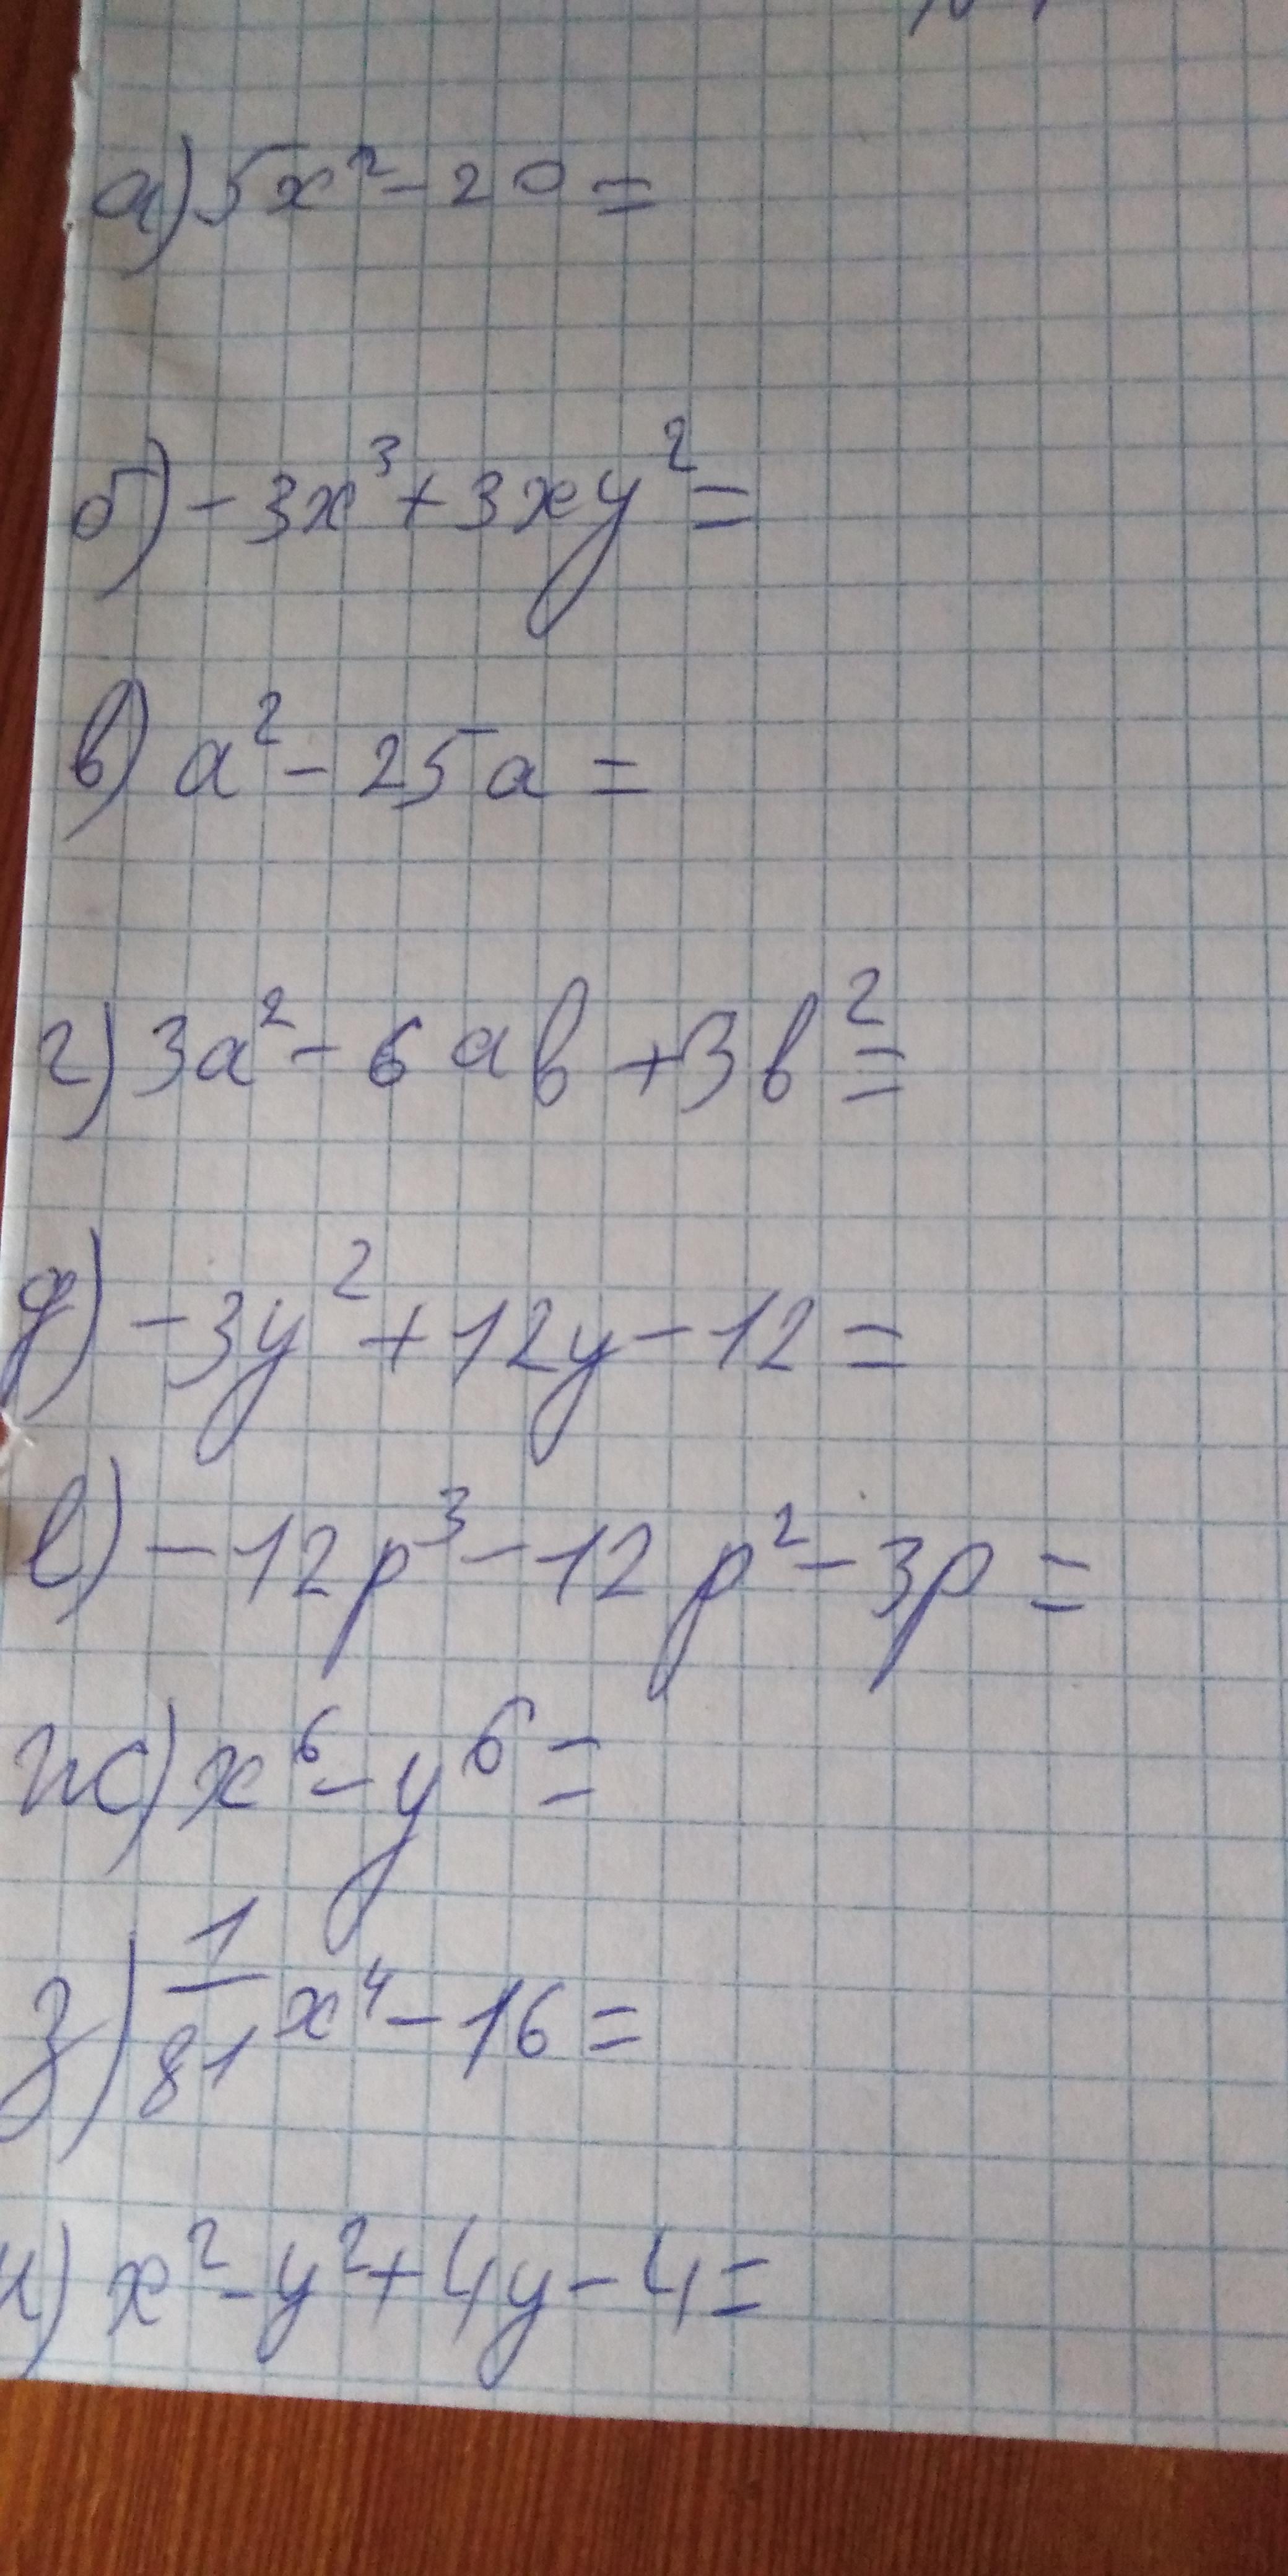 а) 5x² - 20 =
б) - 3x³ + 3xy² =
в) a² - 25a =
г) 3a² - 6ab + 3b² =
д) - 3y² + 12y - 12 =
е) - 12p³ - 12p² - 3p =
ж) x⁶ - y⁶ =
з) 1/81 x⁴ - 16 =
и) x² - y² + 4y - 4 =